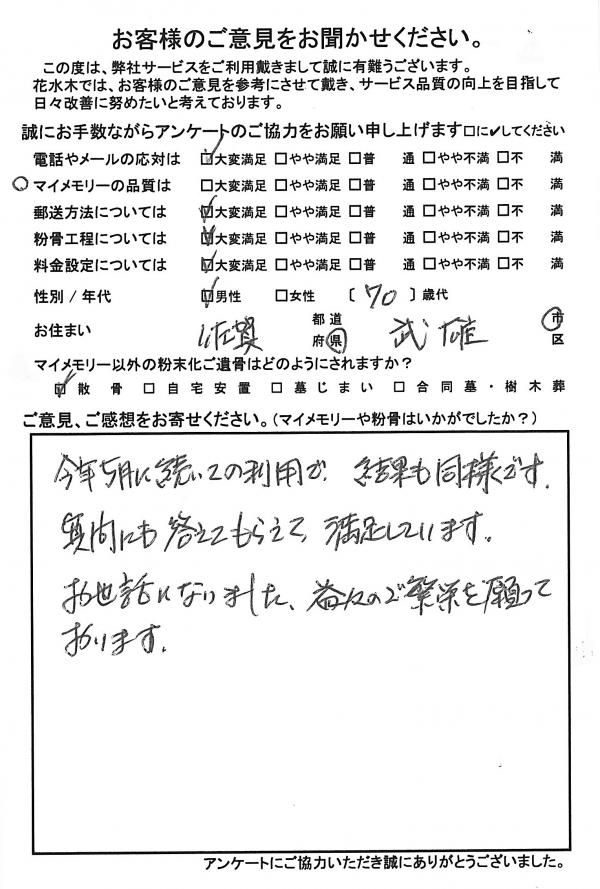 お客様のご意見をお聞かせください。
この度は、弊社サービスをご利用戴きまして誠に有難うございます。
花水木では、お客様のご意見を参考にさせて戴き、サービス品質の向上を目指して
日々改善に努めたいと考えております。
誠にお手数ながらアンケートのご協力をお願い申し上げます□に✔してください
電話やメールの応対は ☑大変満足 □やや満足 □普 通 □やや不満 □不 満
○マイメモリーの品質は □大変満足 □やや満足 □普 通 □やや不満 □不 満
郵送方法については ☑大変満足 □やや満足 □普 通 □やや不満 □不 満
粉骨工程については ☑大変満足 □やや満足 □普 通 □やや不満 □不 満
料金設定については ☑大変満足 □やや満足 □普 通 □やや不満 □不 満
性別/年代 ☑男性 □女性 〔 70 〕歳代
お住まい 佐賀 都道府県 武雄 市区
マイメモリー以外の粉末化ご遺骨はどのようにされますか?
☑散骨 □自宅安置 □墓じまい □合同墓・樹木葬
ご意見、ご感想をお寄せください。(マイメモリーや粉骨はいかがでしたか?)
今年5月に続いての利用で、結果も同様です。
質問にも答えてもらえて、満足しています。
お世話になりました、益々のご繁栄を願って
おります。
アンケートにご協力いただき誠にありがとうございました。